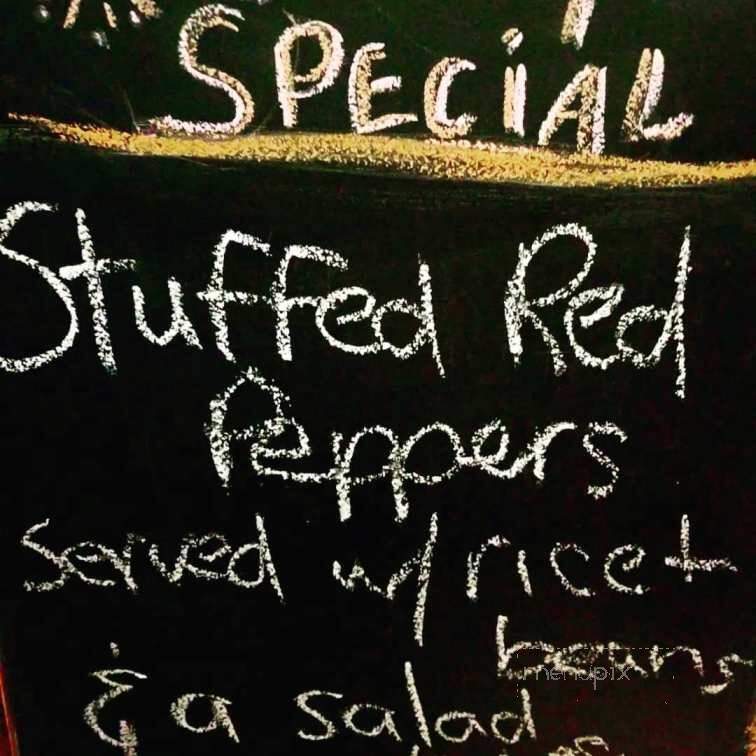 SPECIAL
Stuffed Red
Peppers
Served w/ rice +
beans
menupix
& a salad